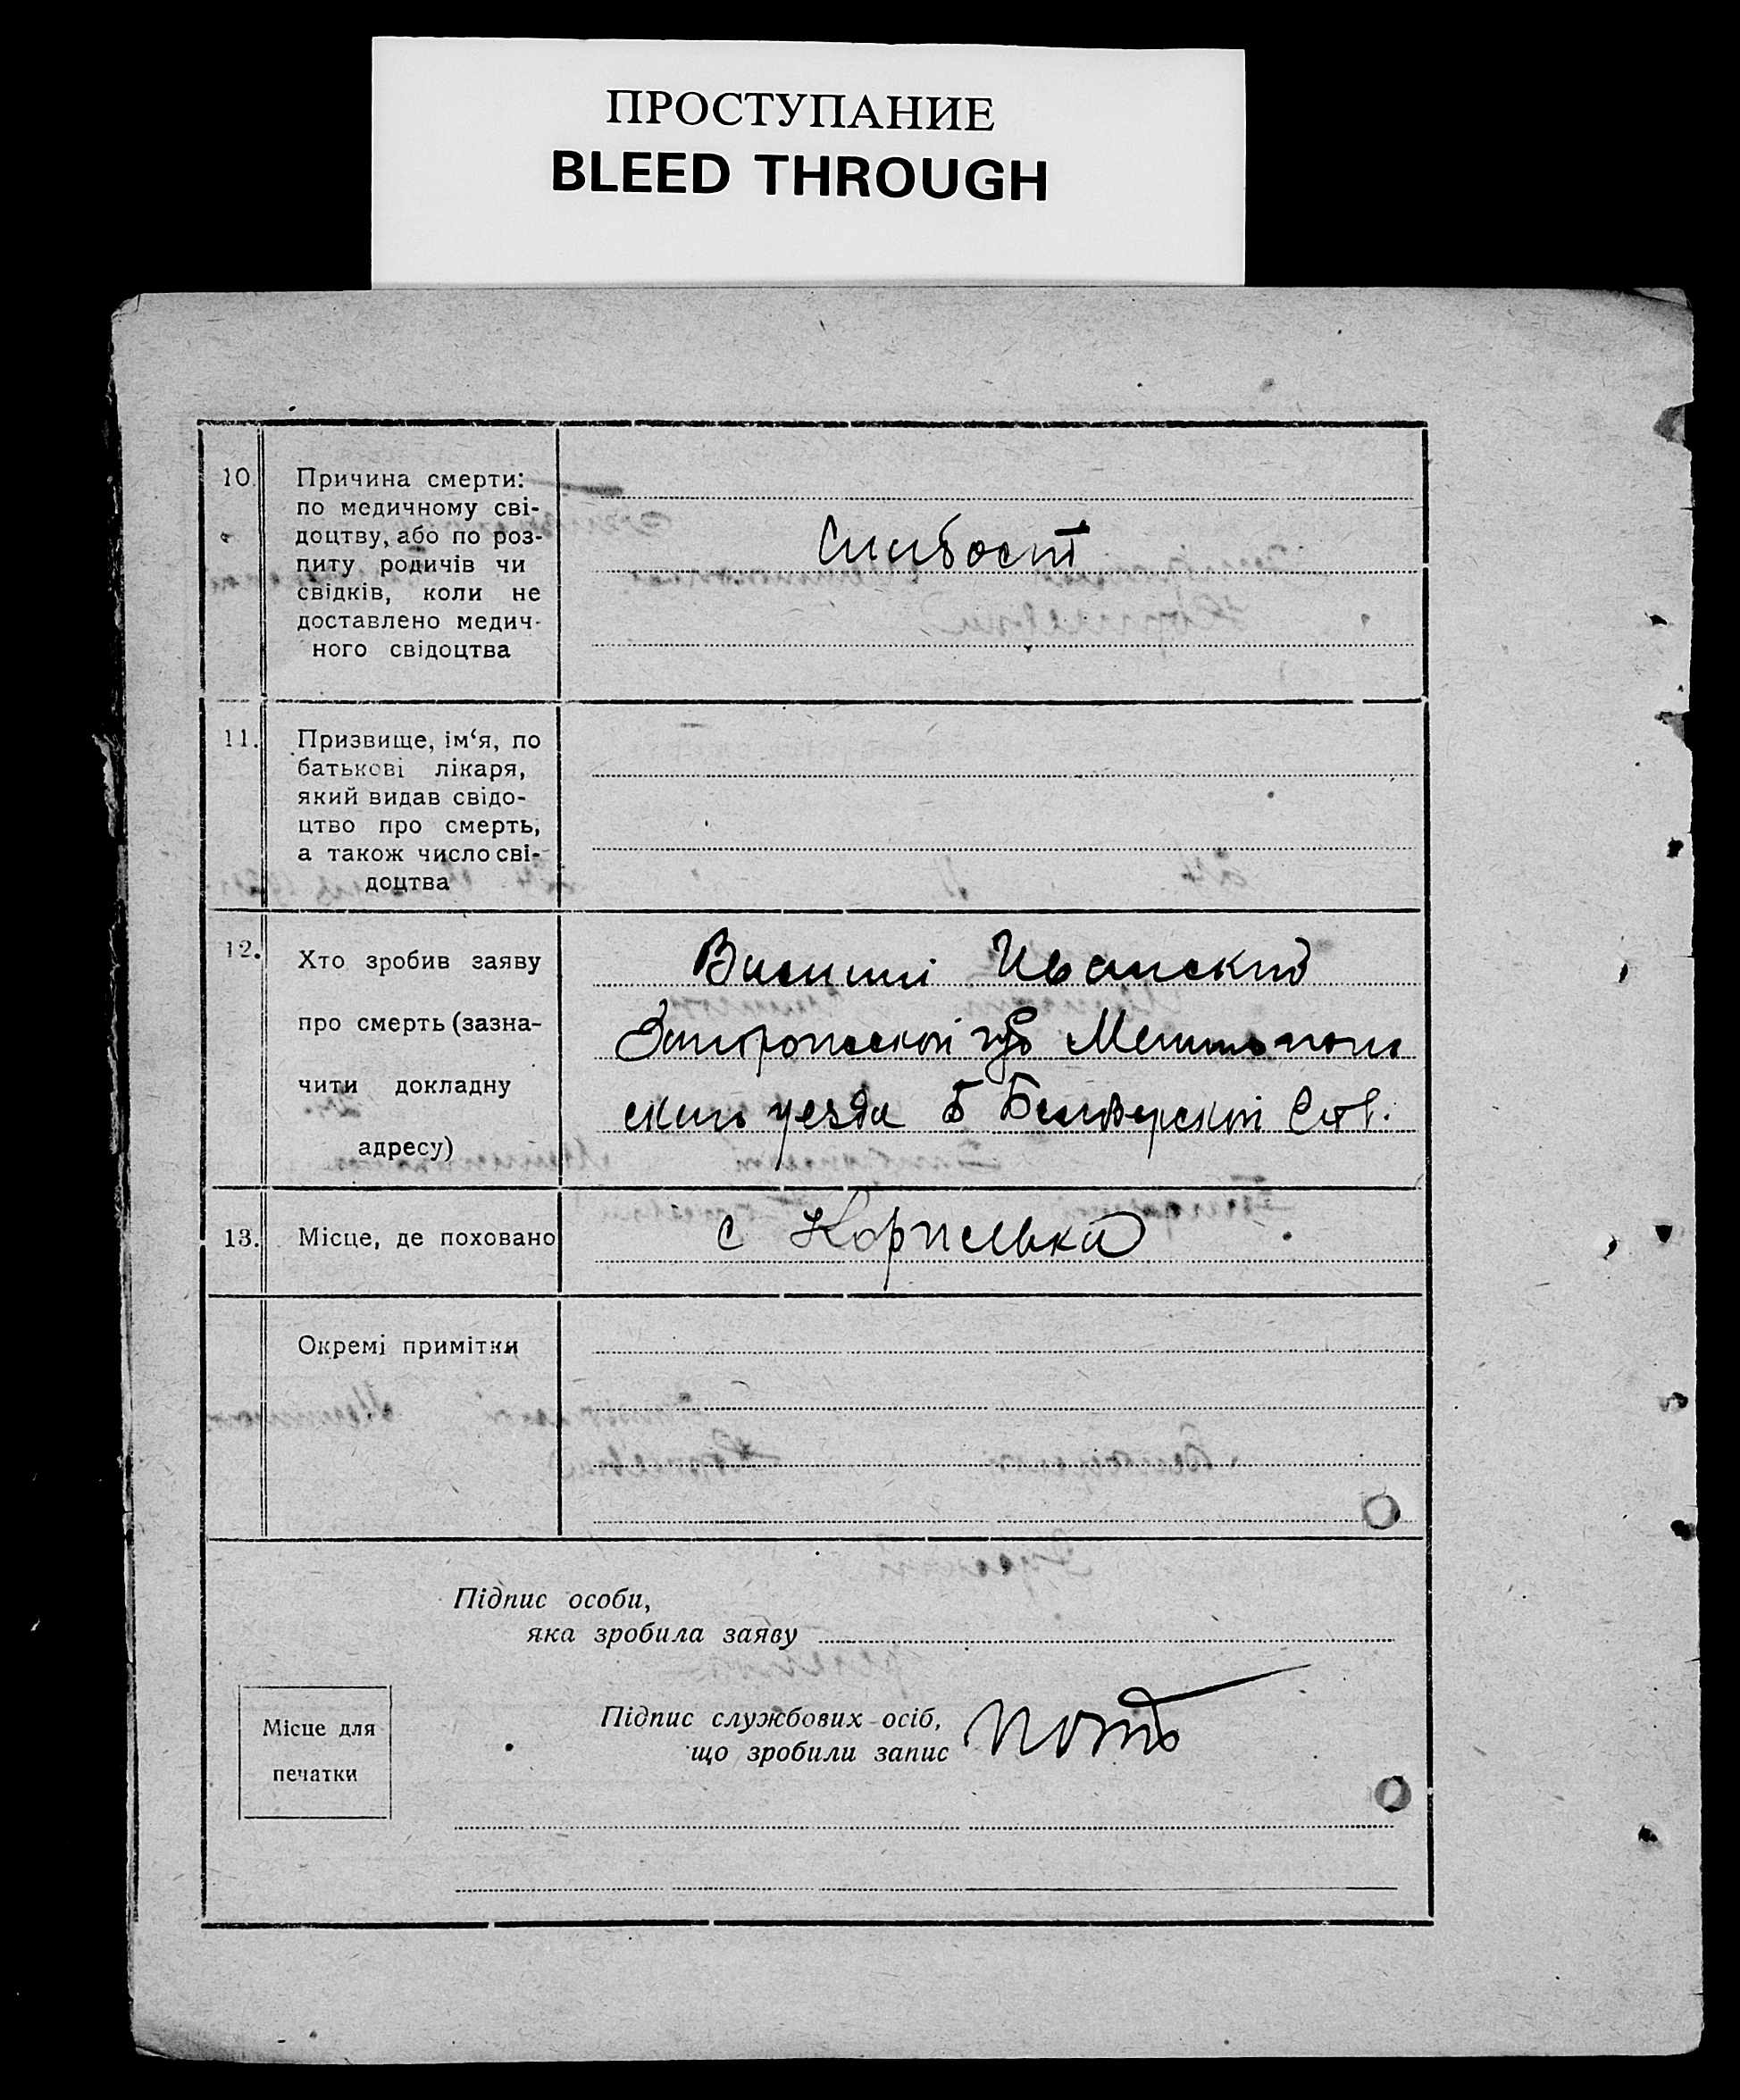 ПРОСТУПАНИЕ
BLEED THROUGH
10.
Причина смерти:
по медичному сві-
доцтву, або по роз-
питу родичів чи
свідків, коли не
доставлено медич-
ного свідоцтва
Слабост
11.
Призвище, ім‘я, по
батькові лікаря,
який видав свідо-
цтво про смерть,
а також число сві-
доцтва
12.
Хто зробив заяву
про смерть (зазна-
чити докладну
адресу)
Василий
Запорожской губ Мелитополь
ского уезда Б Белозерской
13.
Місце, де поховано
с
Окремі примітки
Підпис особи,
яка зробила заяву
Місце для
печатки
Підпис службових осіб,
що зробили запис